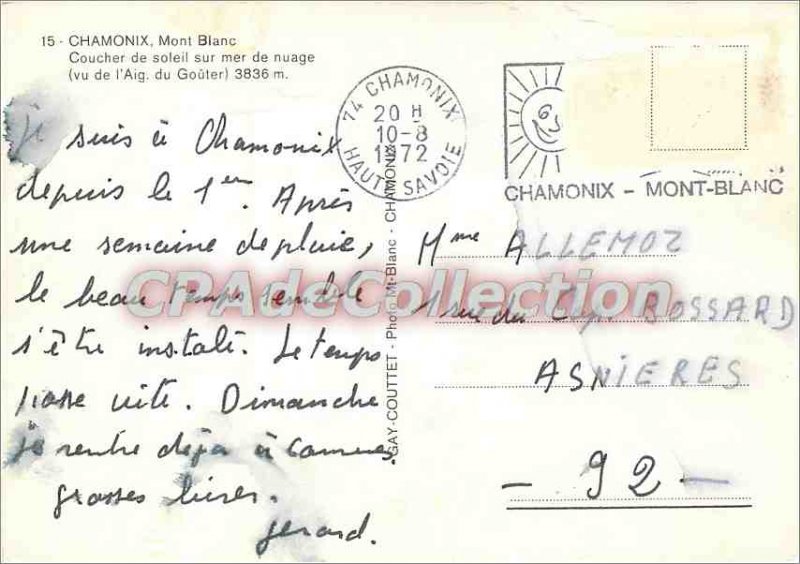 15 - CHAMONIX, Mont Blanc
Coucher de soleil sur mer de nuage
(vu de l'Aig. du Goûter) 3836 m.
je suis à Chamonix
depuis le 1er. Après
une semaine de pluie,
le beau temps semble
s'être installé. Le temps
passe vite. Dimanche
je rentre déjà à
grosses bises.
gerard.
74 CHAMONIX
20 H
10-8
1972
HAUTE SAVOIE
CHAMONIX - MONT-BLANC
GAY-COUTTET - Photo Mt-Blanc - CHAMONIX
Mme ALLEMOZ
1 rue du Cap. BOSSARD
ASNIERES
- 92 -
CPAdeCollection